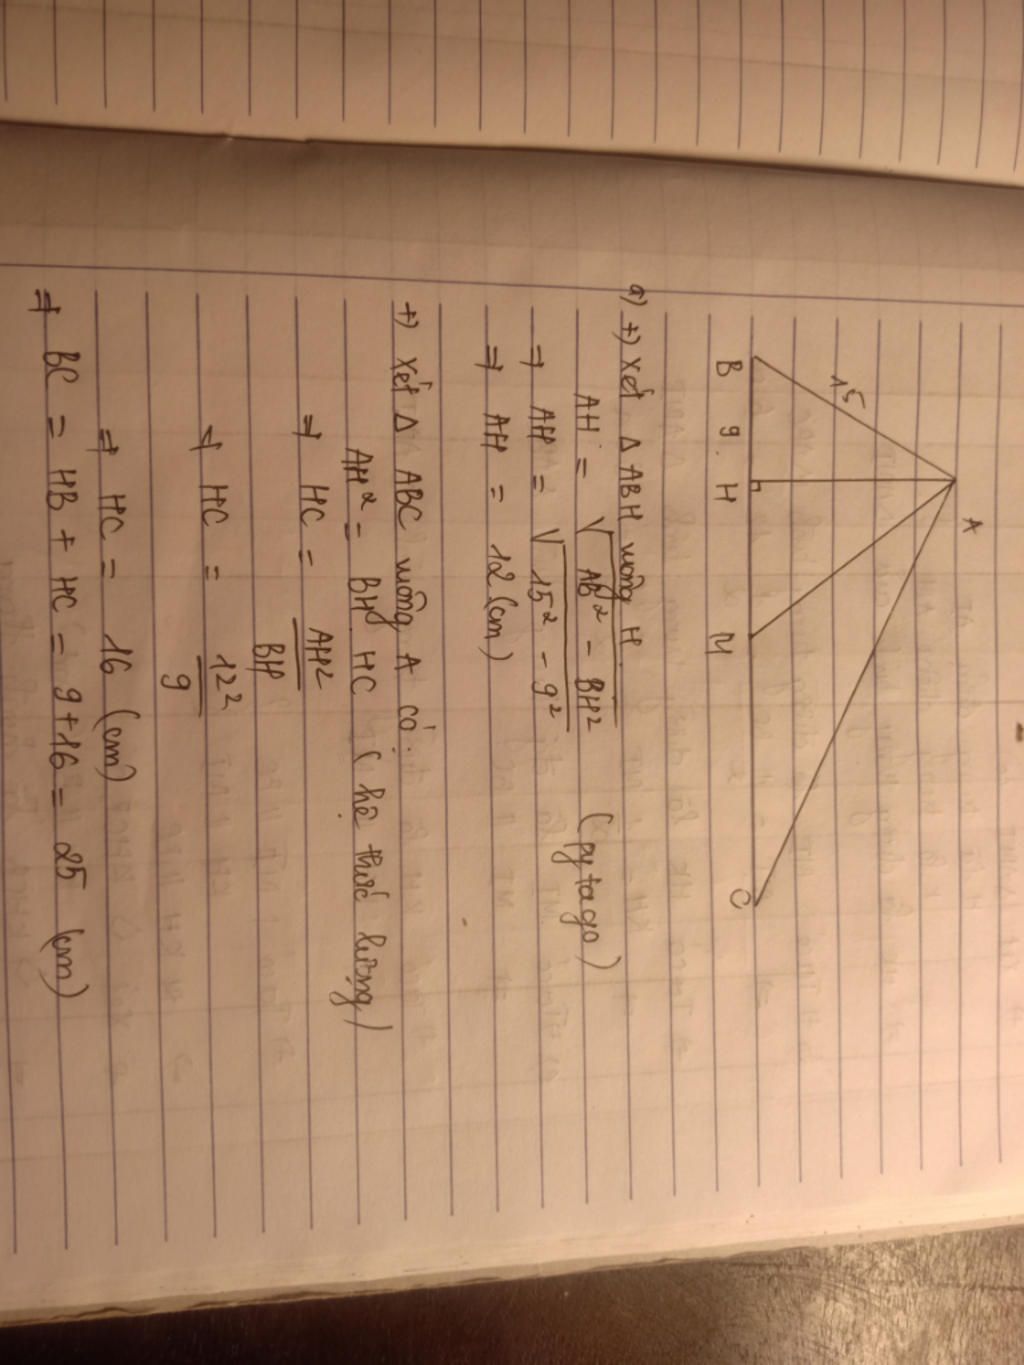 A
15
B 9 H M C
a) +) xét Δ ABH vuông H
AH = √AB² - BH² (pytago)
⇒ AH = √15² - 9²
⇒ AH = 12 (cm)
+) xét Δ ABC vuông A có:
AH² = BH. HC (hệ thức lượng)
⇒ HC = AH²/BH
⇒ HC = 12²/9
⇒ HC = 16 (cm)
⇒ BC = HB + HC = 9 + 16 = 25 (cm)